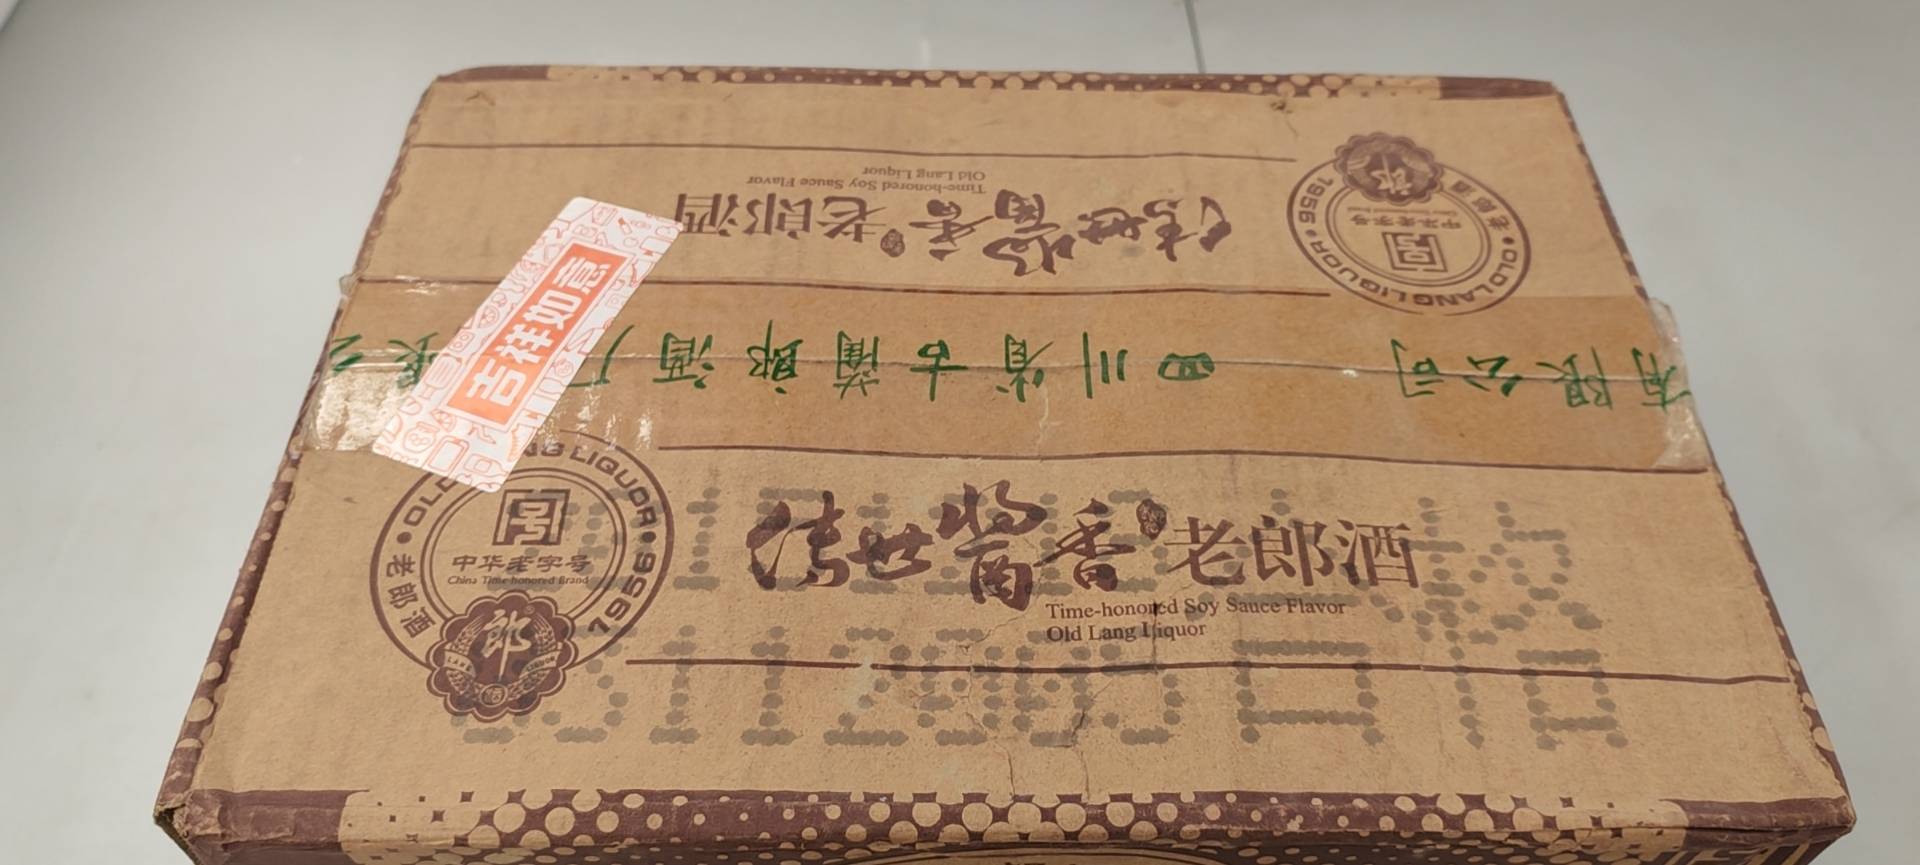 传世酱香老郎酒
Time-honored Soy Sauce Flavor
Old Lang Liquor
OLD LANG LIQUOR
1956
老郎酒
中华老字号
郎
吉祥如意
有限公司 四川省古蔺郎酒厂
传世酱香老郎酒
Time-honored Soy Sauce Flavor
Old Lang Liquor
LIQUOR
1956
老郎酒
中华老字号
China Time-honored Brand
郎